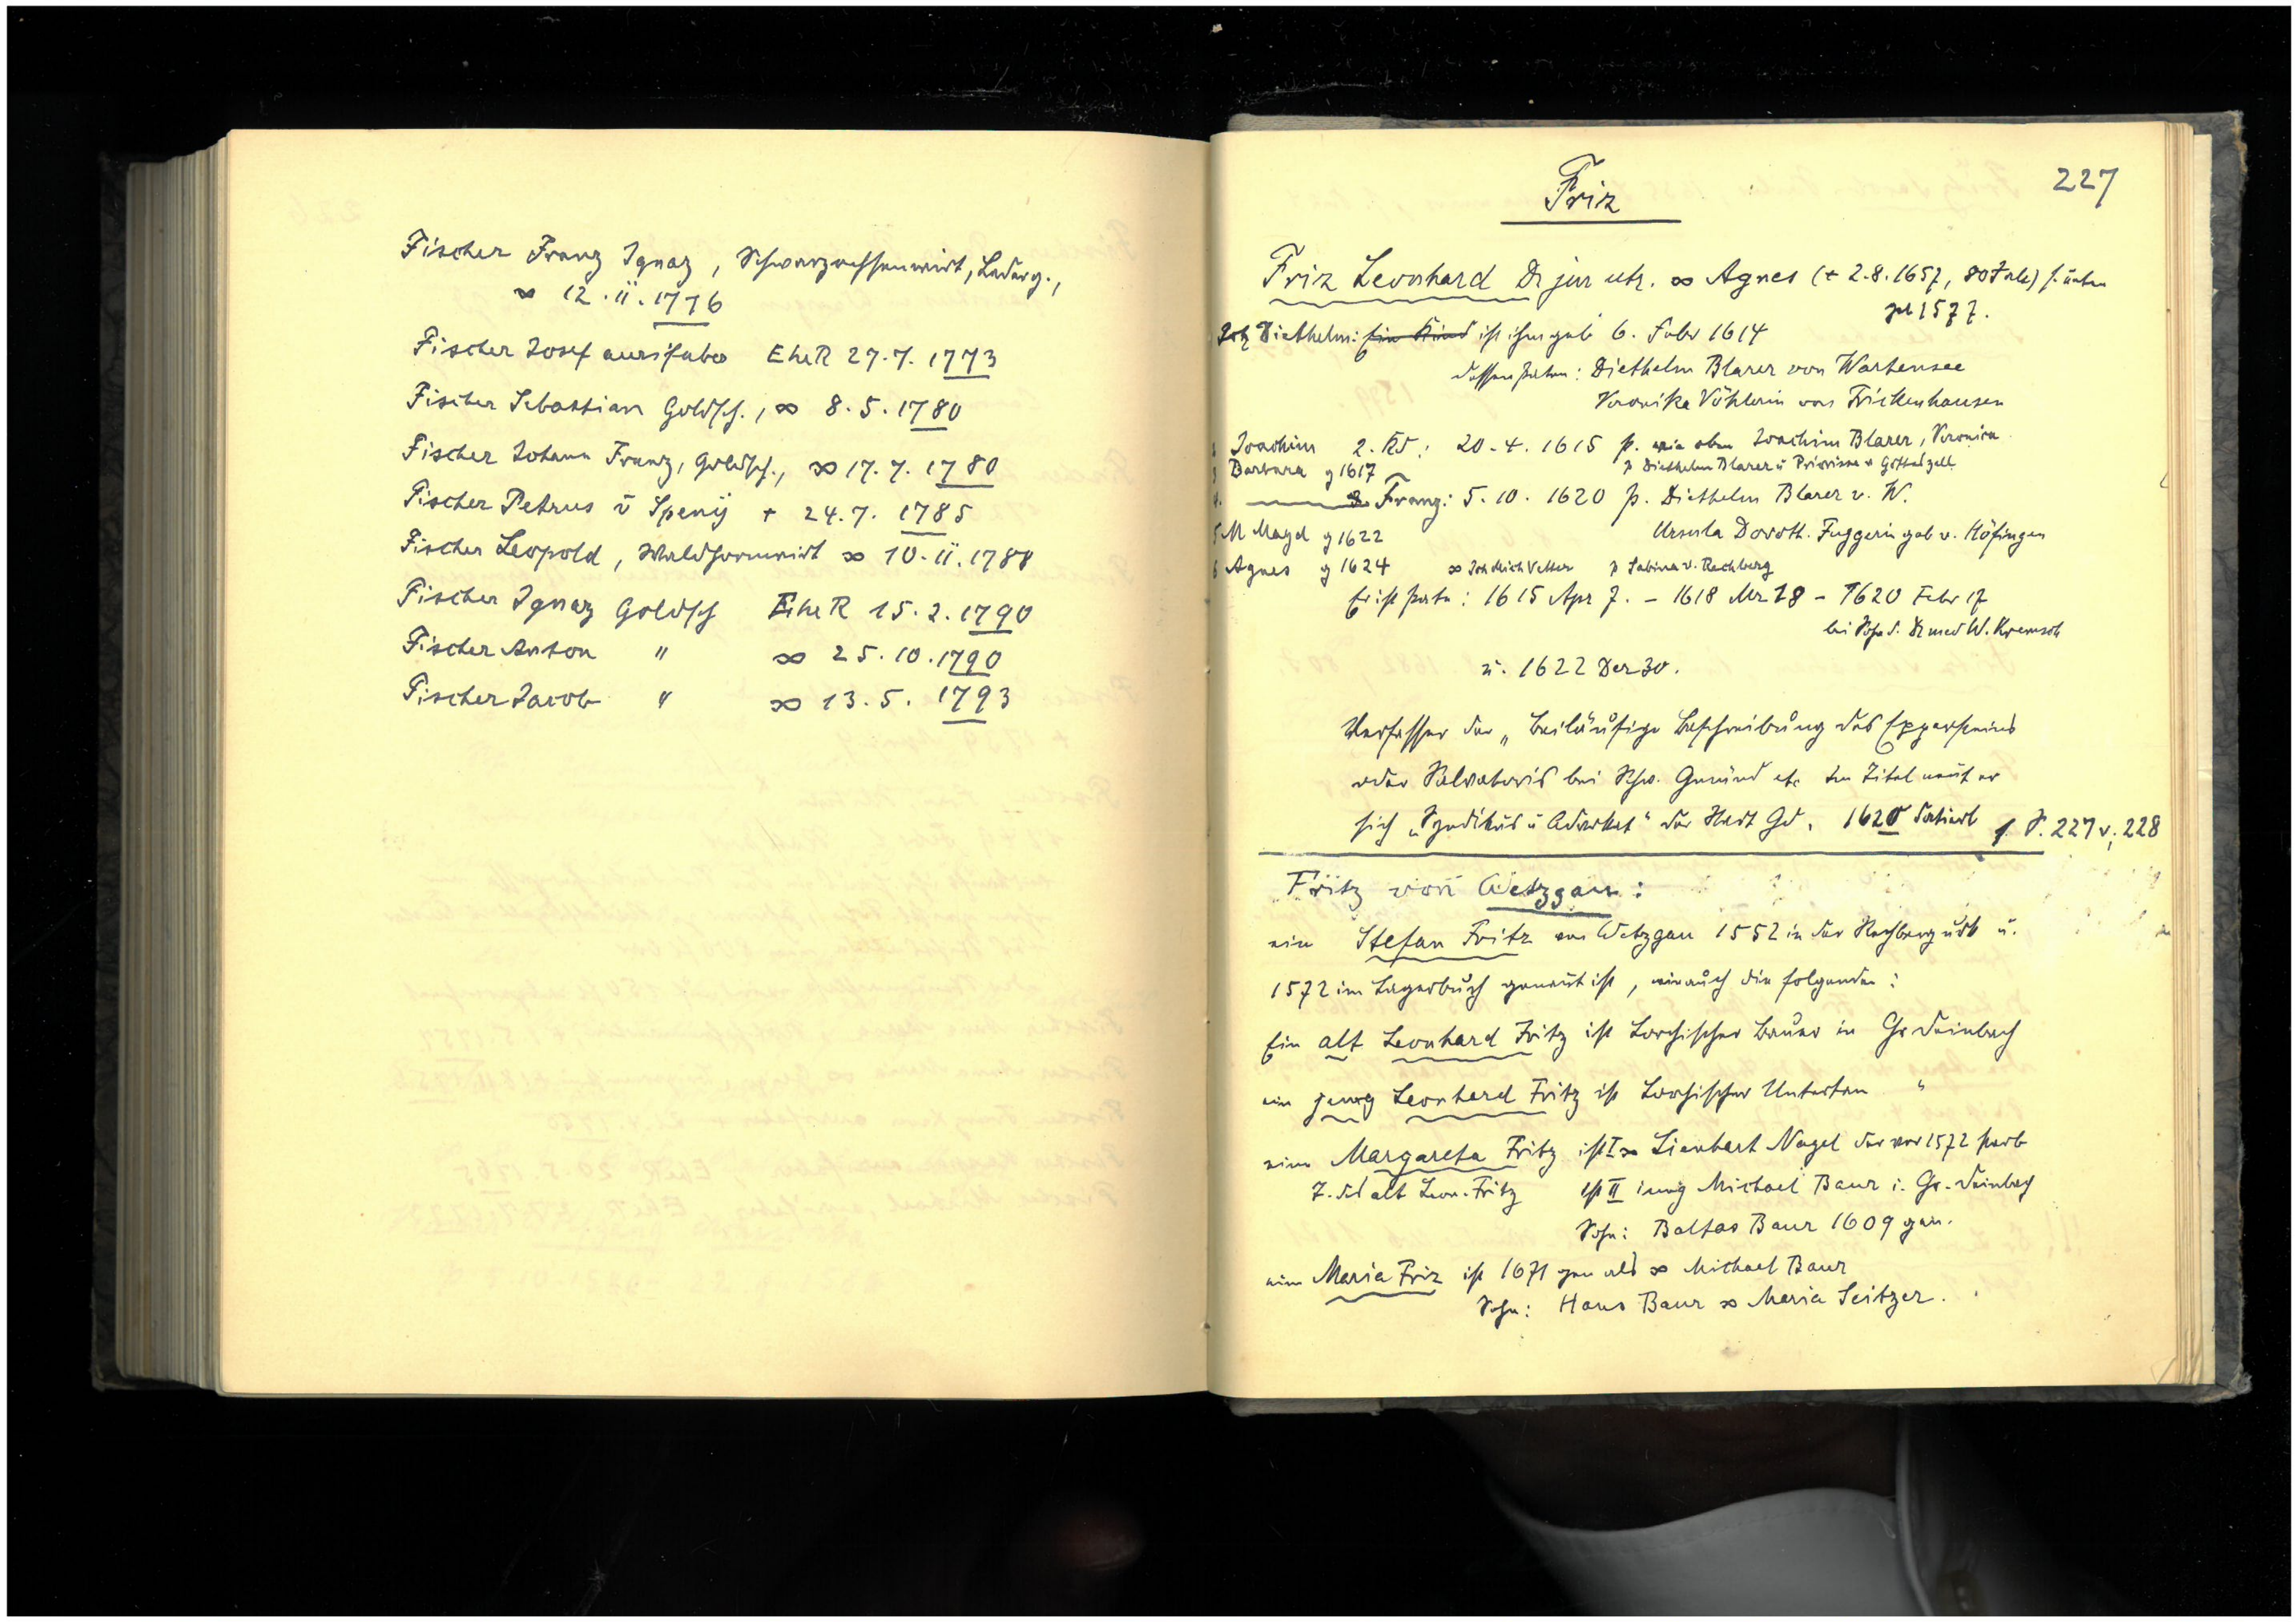 Fischer Franz Ignaz, Schwarzochsenwirt, Lederg.,
∞ 12.11.1776
Fischer Josef aurifaber EheR 27.7.1773
Fischer Sebastian Goldsch., ∞ 8.5.1780
Fischer Johann Franz, Goldsch., ∞ 17.7.1780
Fischer Petrus v Speny + 24.7.1785
Fischer Leopold, Waldhornwirt ∞ 10.11.1788
Fischer Ignaz Goldsch EheR 15.2.1790
Fischer Anton " ∞ 25.10.1790
Fischer Jacob " ∞ 13.5.1793
227
Friz
Friz Leonhard Dr jur utr. ∞ Agnes (+ 2.8.1657, 80 Jale) s. unten
geb 1577.
Diethelm: Ein Kind ist ihm geb 6. Febr 1614
dessen Paten: Diethelm Blarer von Wartensee
Veronika Vöhlerin von Frickenhausen
Joachim 2. Kd: 20.4.1615 p. wie oben Joachim Blarer, Veronica
3 Barbara g 1617 p Diethelm Blarer u Priorissa v Gotteszell
4. Franz: 5.10.1620 p. Diethelm Blarer v. W.
5 M Magd g 1622 Ursula Doroth. Fuggerin geb v. Höfingen
6 Agnes g 1624 ∞ Joh Mich Vetter p Sabina v. Rechberg
Er ist Pate: 1615 Apr 7. – 1618 Mr 28 – 1620 Febr 17
bei Sohn d. Dr med W. Kremsch
u. 1622 Dez 30.
Verfasser der „Beiläufige Beschreibung des Eppersteins
oder Salvatoris bei Schw. Gmünd etc Im Titel nennt er
sich „Syndikus u Advokat" der Stadt Gd. 1620 datiert s. S. 227 v; 228
Fritz von Wetzgau:
ein Stefan Fritz von Wetzgau 1552 in der Rechberg urk u.
1572 im Lagerbuch genannt ist, wie auch die folgenden:
Ein alt Leonhard Fritz ist Lorchischer Bauer in Gr Deinbach
ein jung Leonhard Fritz ist Lorchischer Untertan "
eine Margareta Fritz ist I ∞ Lienhart Nagel der vor 1572 starb
T. des alt Leon. Fritz ist II jung Michael Baur i. Gr. Deinbach
Sohn: Baltas Baur 1609 gen.
eine Maria Friz ist 1671 gen als ∞ Michael Baur
Sohn: Hans Baur ∞ Maria Seitzer.